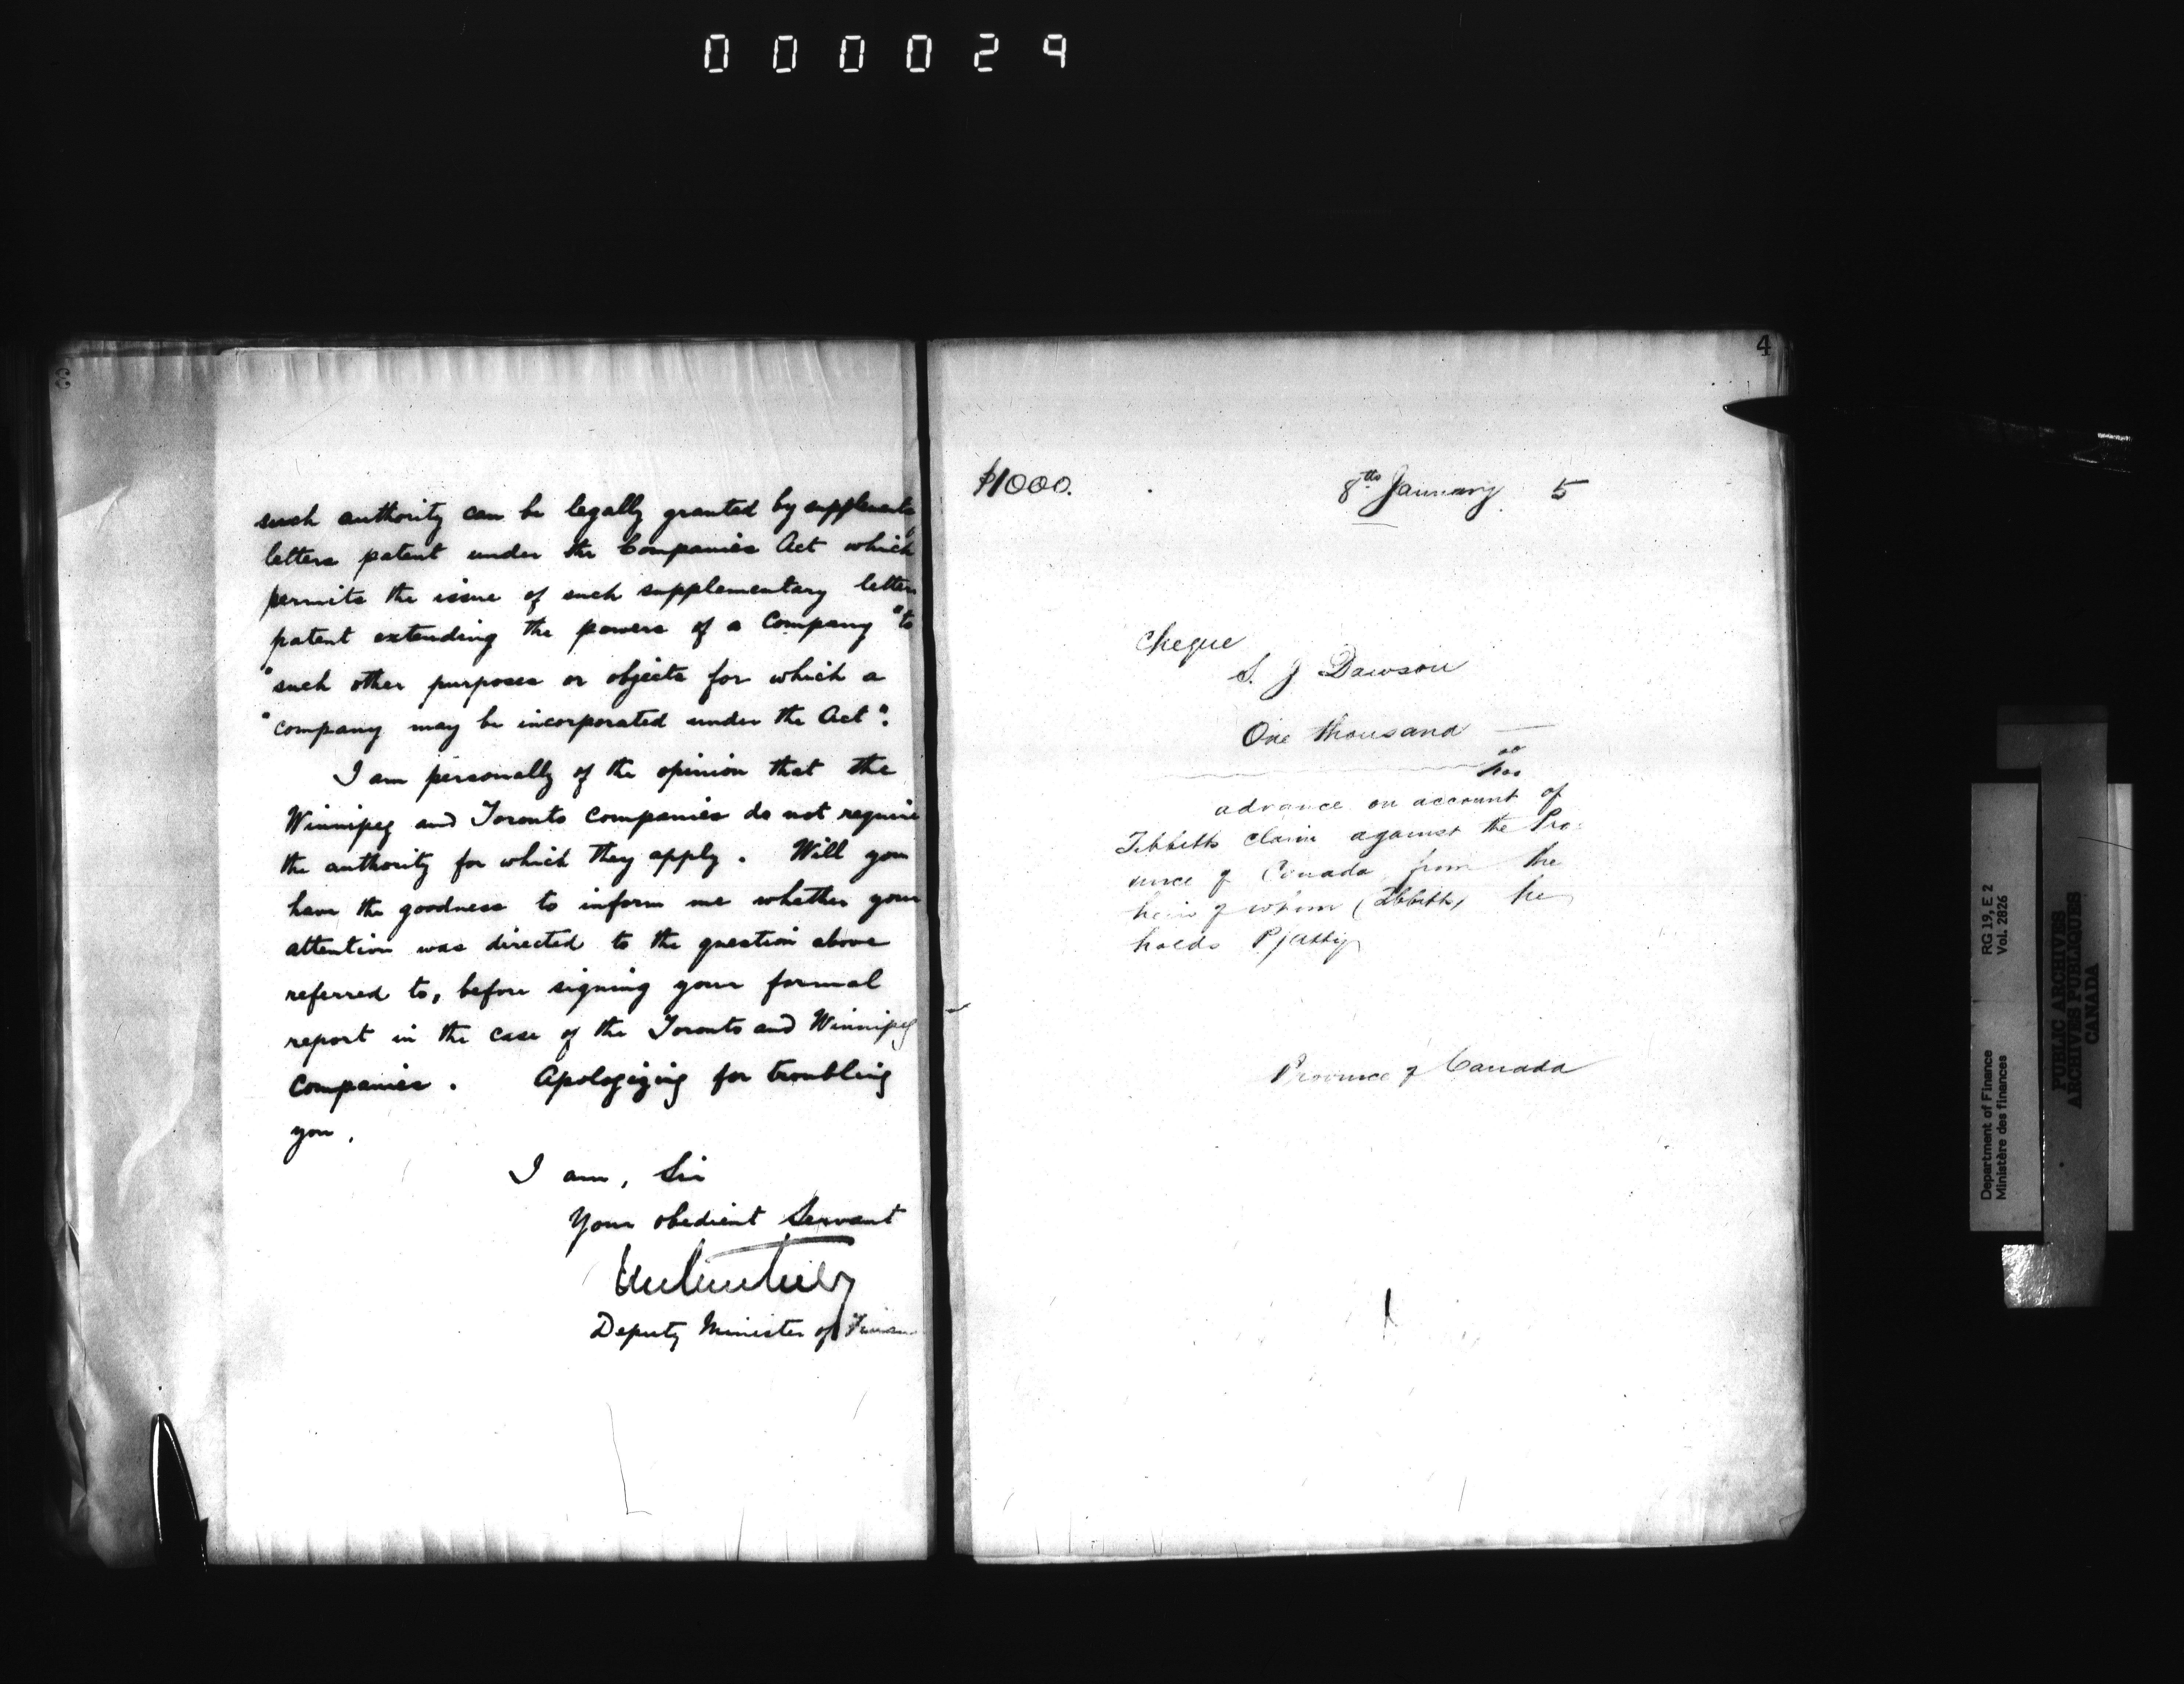 000029
3
such authority can be legally granted by supplementy
letters patent under the Companies Act which
permits the issue of such supplementary letters
patent extending the powers of a Company "to
"such other purposes or objects for which a
"company may be incorporated under the Act".
I am personally of the opinion that the
Winnipeg and Toronto Companies do not require
the authority for which they apply. Will you
have the goodness to inform me whether your
attention was directed to the question above
referred to, before signing your formal
report in the case of the Toronto and Winnipeg
Companies. Apologizing for troubling
you,
I am, Sir
Your obedient Servant
Deputy Minister of Finance
4
$1000.
8th January 5
Cheque
S. J Dawson
One thousand —
00/100
advance on account of
Tibbitts claim against the Pro-
vince of Canada, from the
heirs of whom (Tibbitts) he
holds P of Atty
Province of Canada
Department of Finance
Ministère des finances
RG 19, E 2
Vol. 2826
PUBLIC ARCHIVES
ARCHIVES PUBLIQUES
CANADA